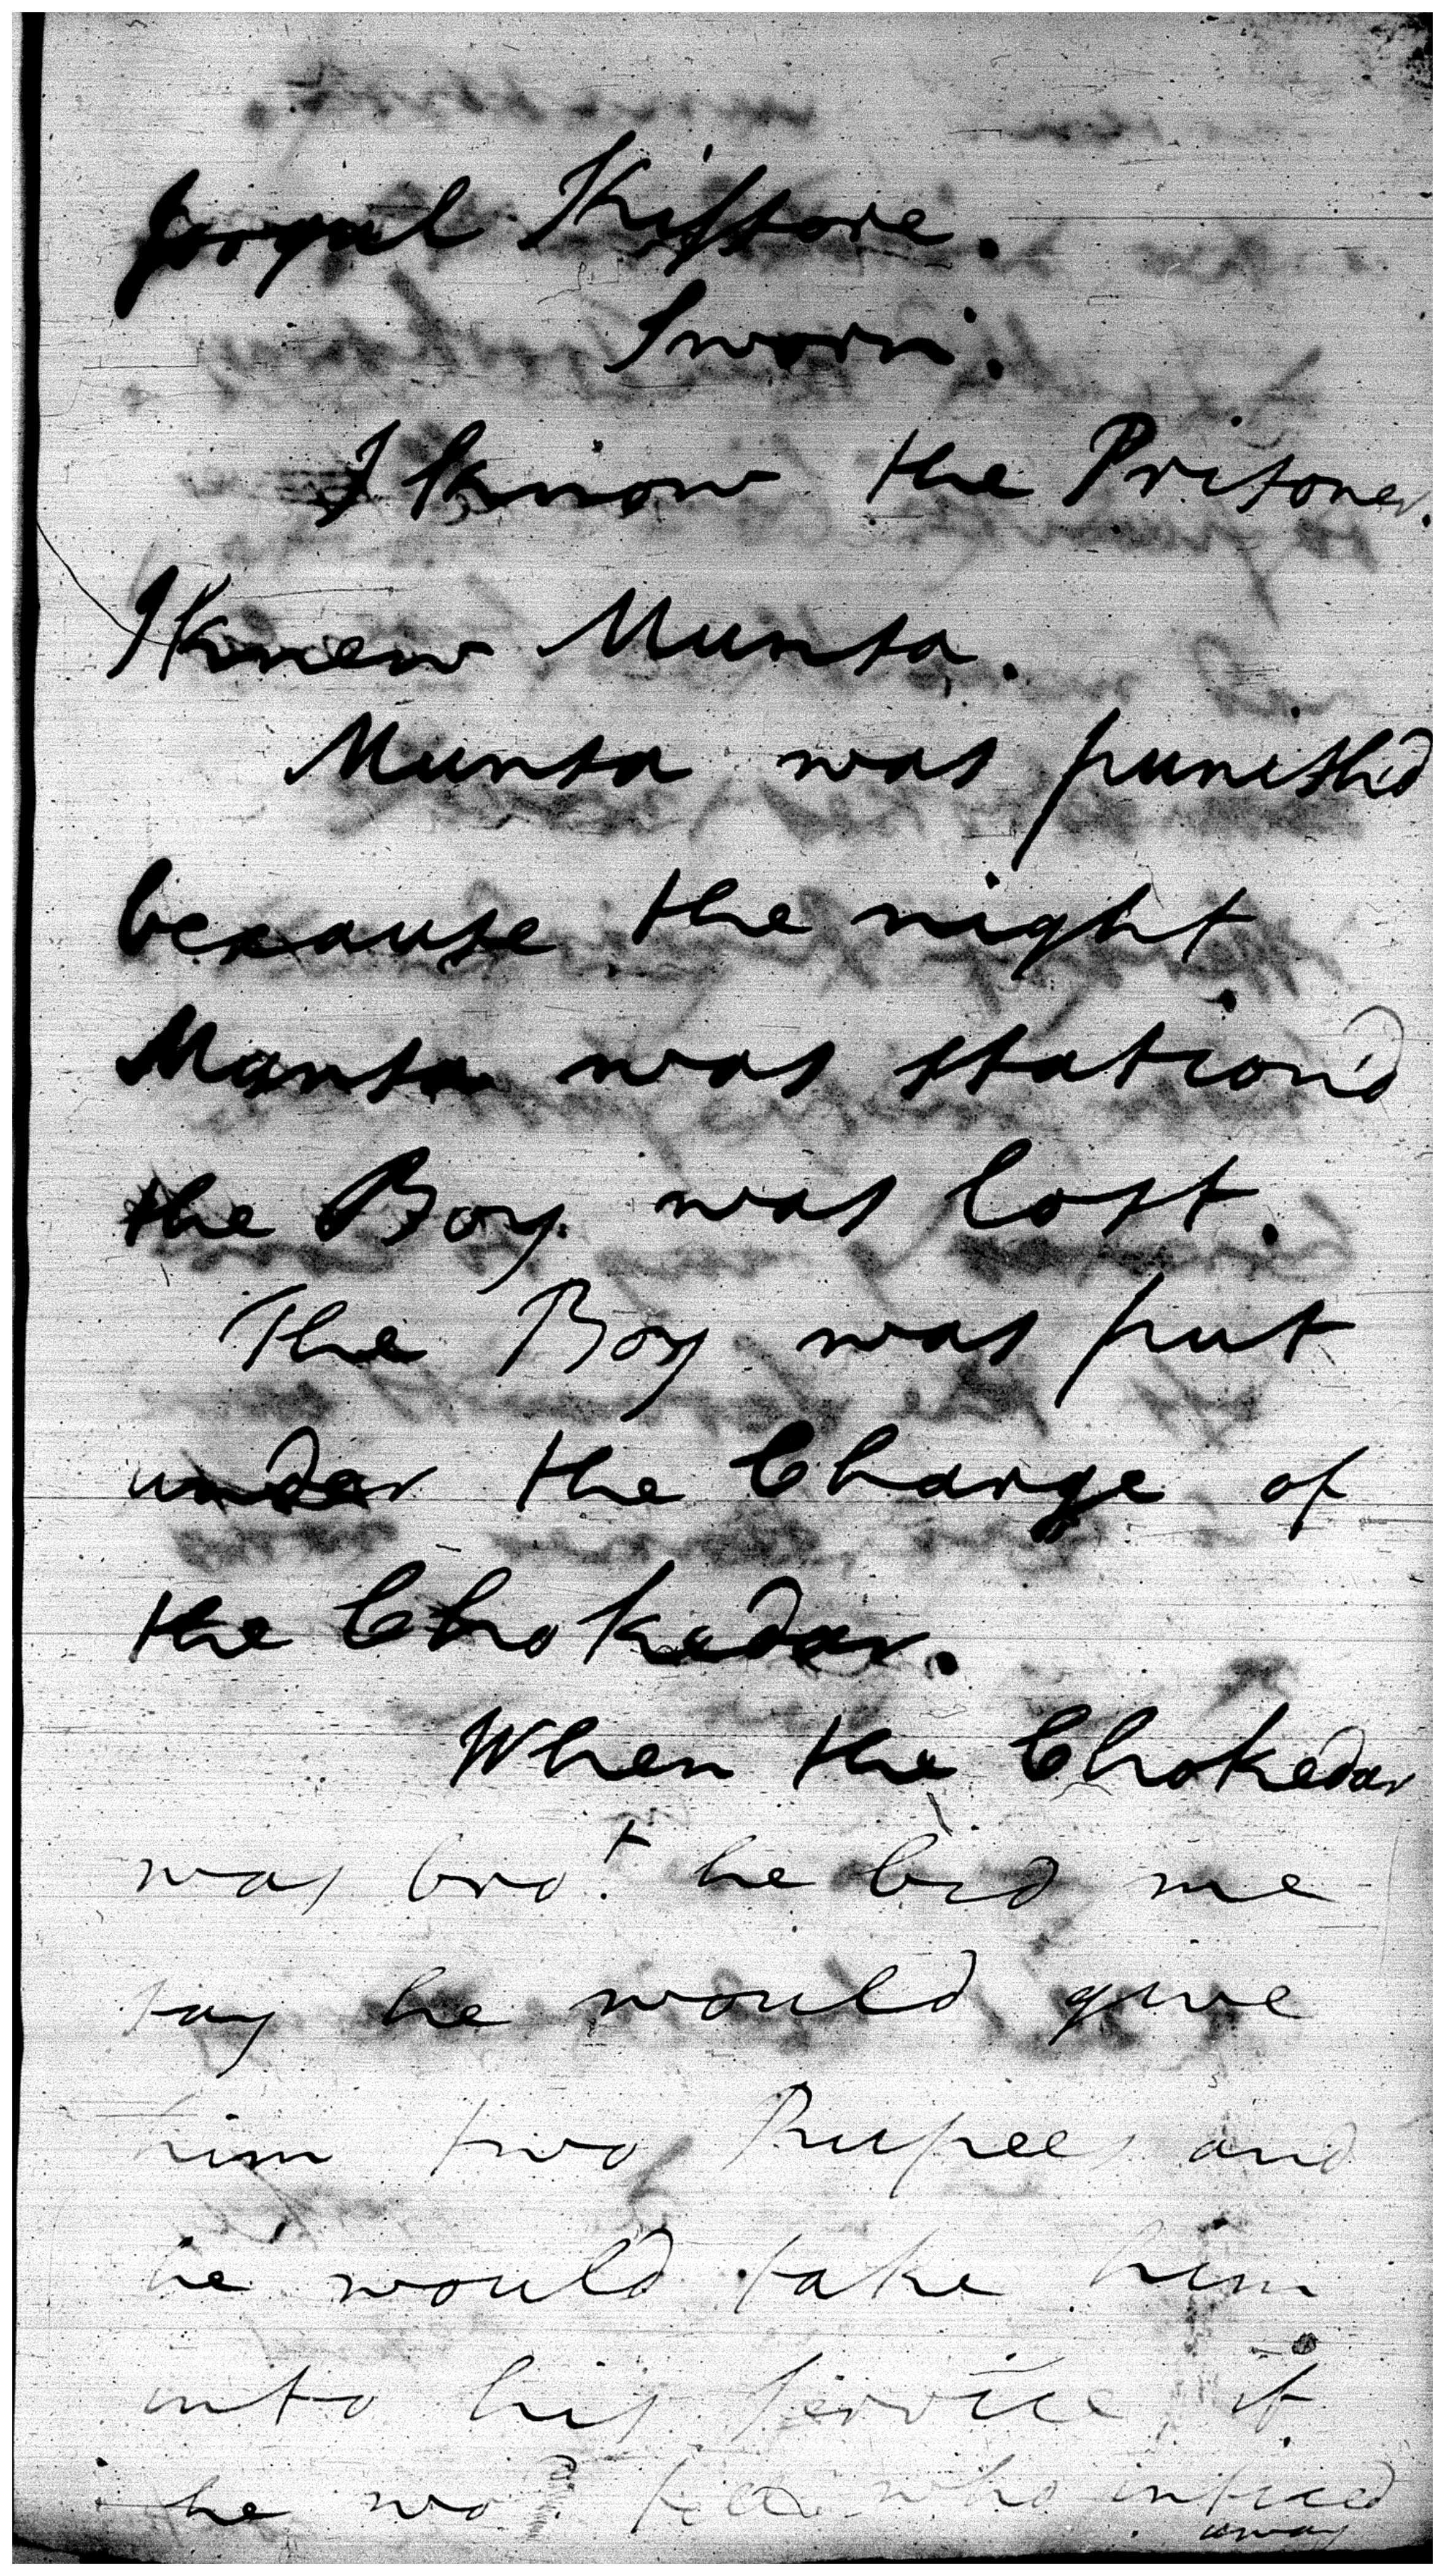 Joogul Kissore.
Sworn.
I know the Prisoner.
I knew Munsa.
Munsa was punish'd
because the night
Munsa was station'd
the Boy was lost.
The Boy was put
under the Charge of
the Chokedar.
When the Chokedar
was bro.t he bid me
say he would give
him two Rupees and
he would take him
into his Service, if
he wo.d tell who inticed
away